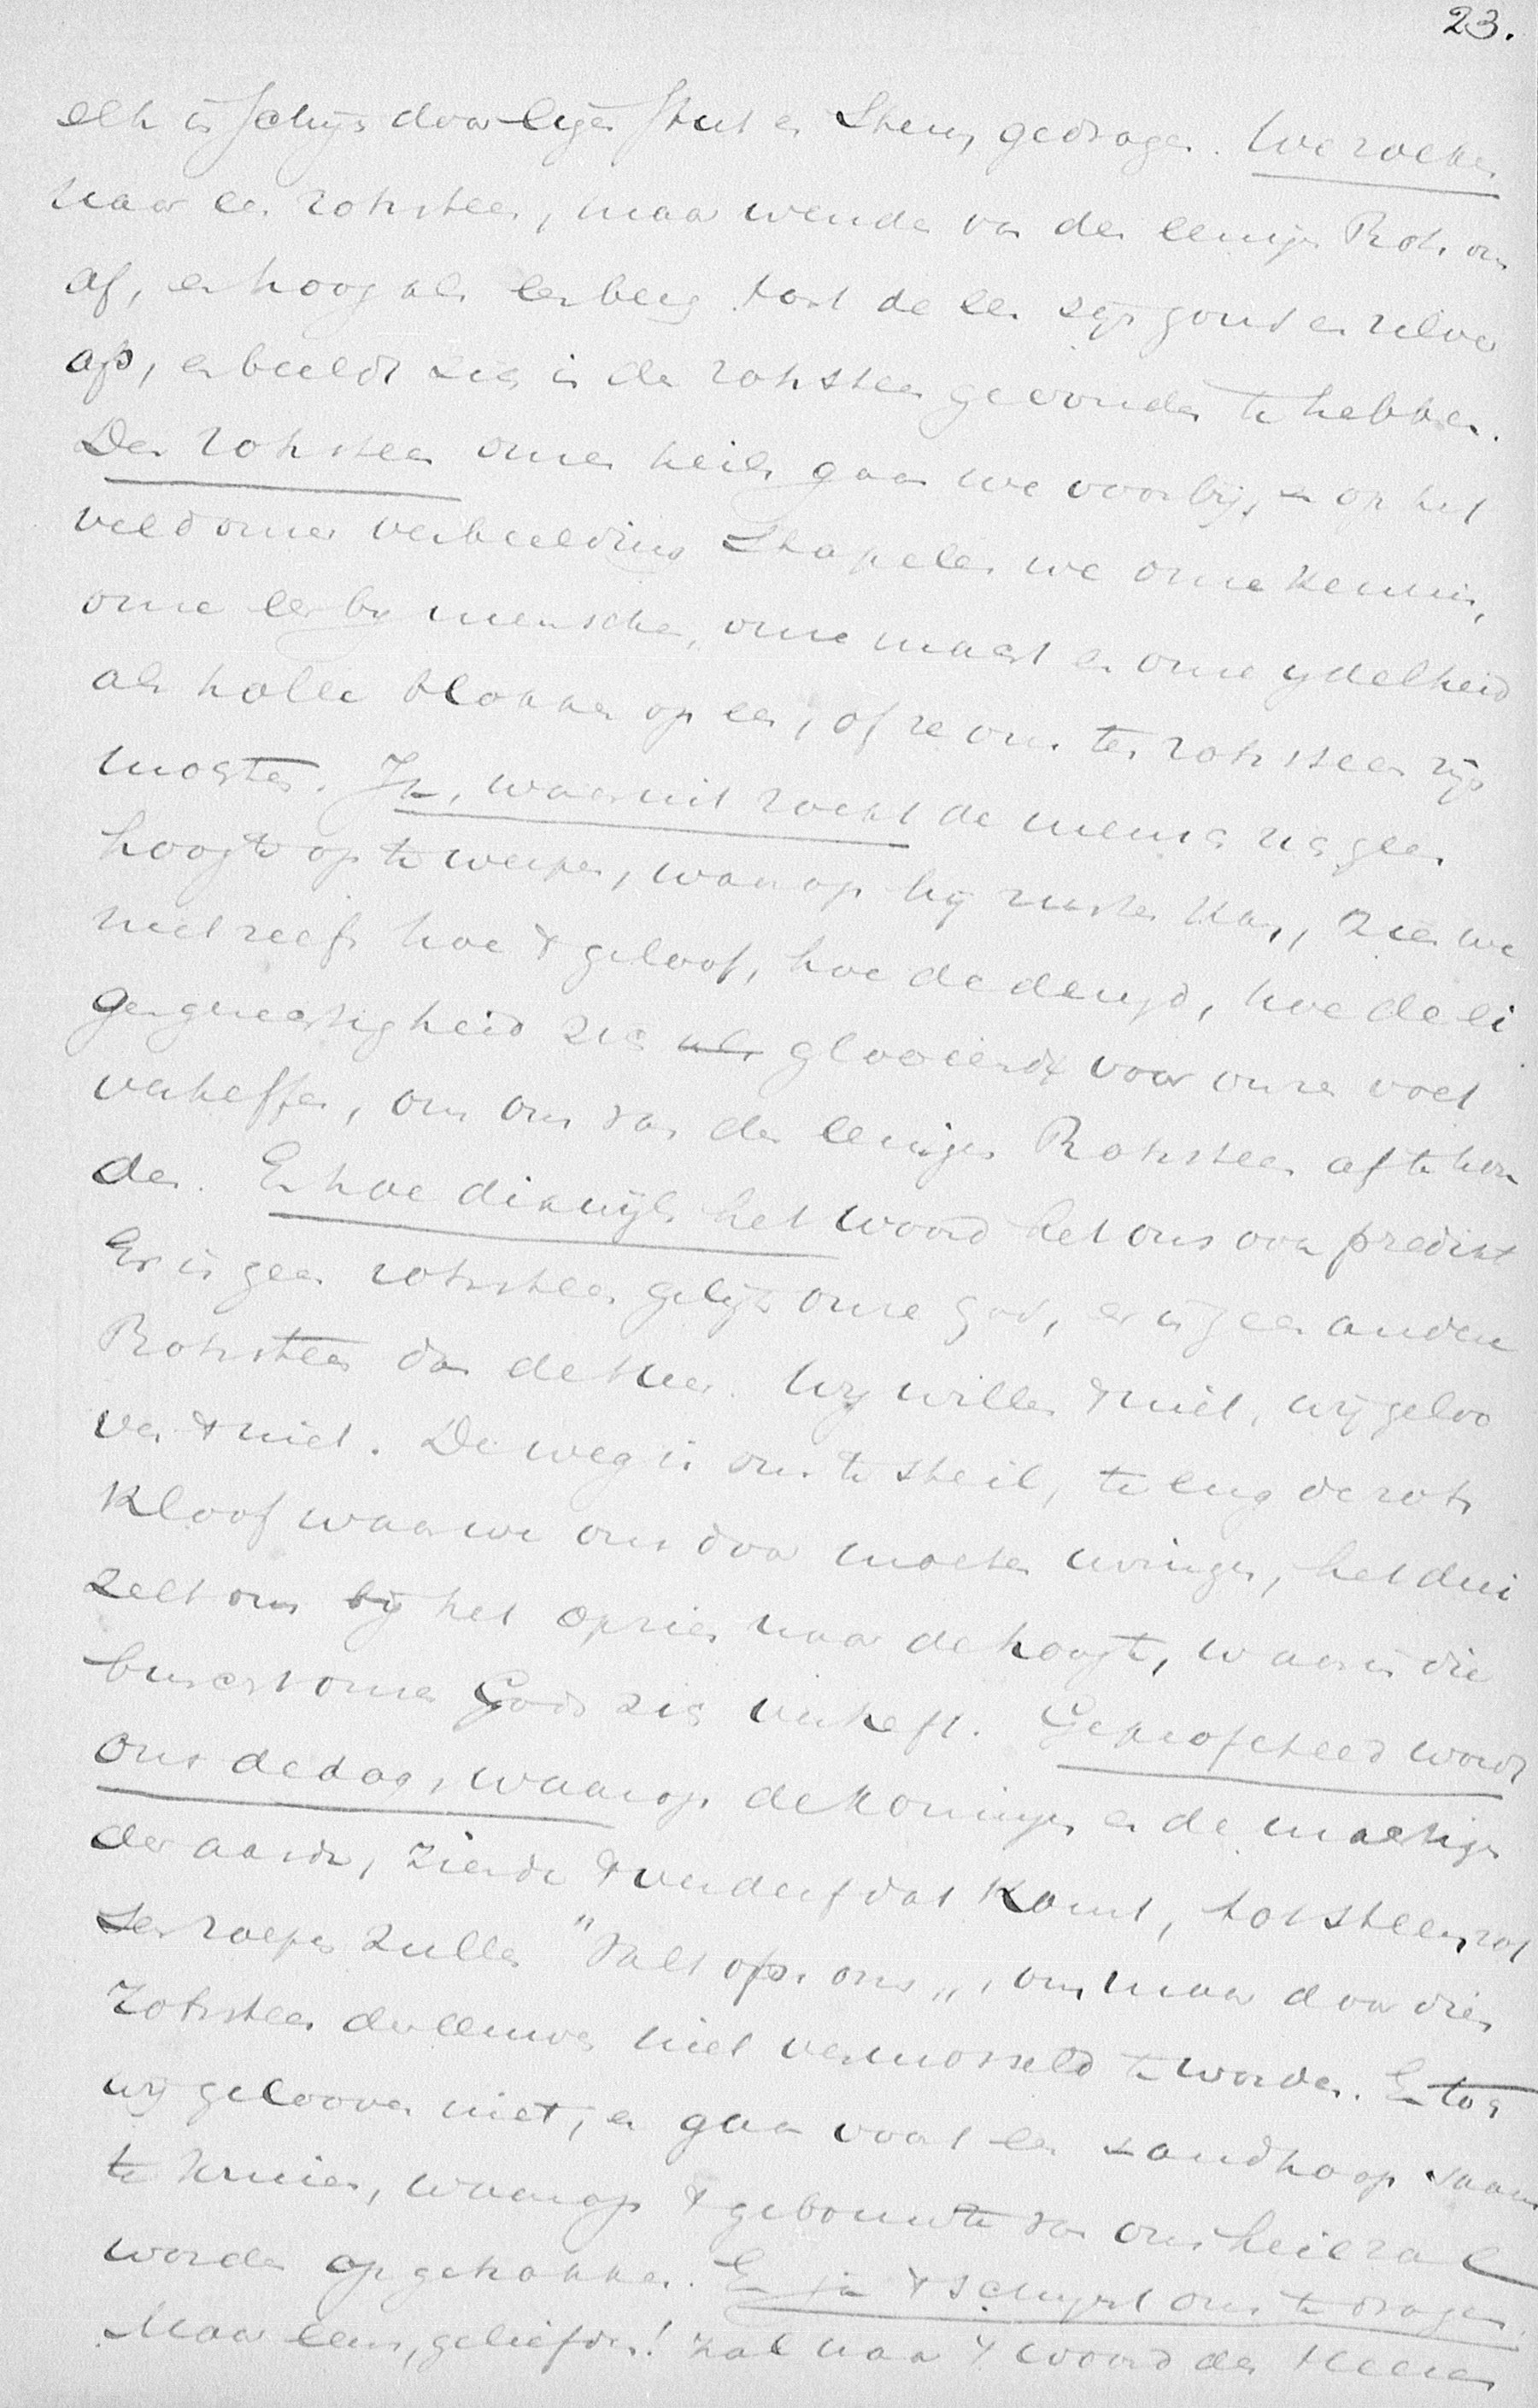 23.
elk in schijn door eigen stut en steun gedragen. We zoeken
naar een rotssteen, maar wenden van den eenigen Rots ons
af, en hoog als een berg tast de een zijn goud en zilver
op, en beeldt zich in den rotssteen gevonden te hebben.
Den rotssteen onzes heils gaan we voorbij, en op het
veld onzer verbeelding stapelen we onze kennis,
onze eer bij menschen, onze macht en onze ydelheid
als holle blokken op een, of ze ons ten rotssteen zijn
mochten. Ja, waaruit zoekt de mensch zich geen
hoogte op te werpen, waarop hij rusten kan, zien we
niet zelfs hoe 't geloof, hoe de deugd, hoe de ei
gengerechtigheid zich als glooiend voor onzen voet
verheffen, om ons van den eenigen Rotssteen af te hou
den. En hoe dikwijls het woord het ons ook predikt
Er is geen rotssteen gelijk onze God, er is geen andere
Rotssteen dan de Heer. Wij willen 't niet, wij geloo
ven 't niet. De weg is ons te steil, te eng de rots
kloof waar we ons door moeten wringen, het dui
zelt ons bij het opzien naar de hoogte, waarin die
burcht onzes Gods zich verheft. Geprofeteerd wordt
ons de dag, waarop de koningen en de machtigen
der aarde, ziende 't verderf dat komt, tot steenrot
sen roepen zullen "Valt op ons", om maar door dien
rotssteen der eeuwen niet vermorseld te worden. En toch
wij gelooven niet, en gaan voort een zandhoop saam
te kruien, waarop 't gebouwte van ons heil zal
worden opgetrokken. En ja 't schijnt ons te dragen.
Maar eens, geliefden! zal naar 't woord des Heeren